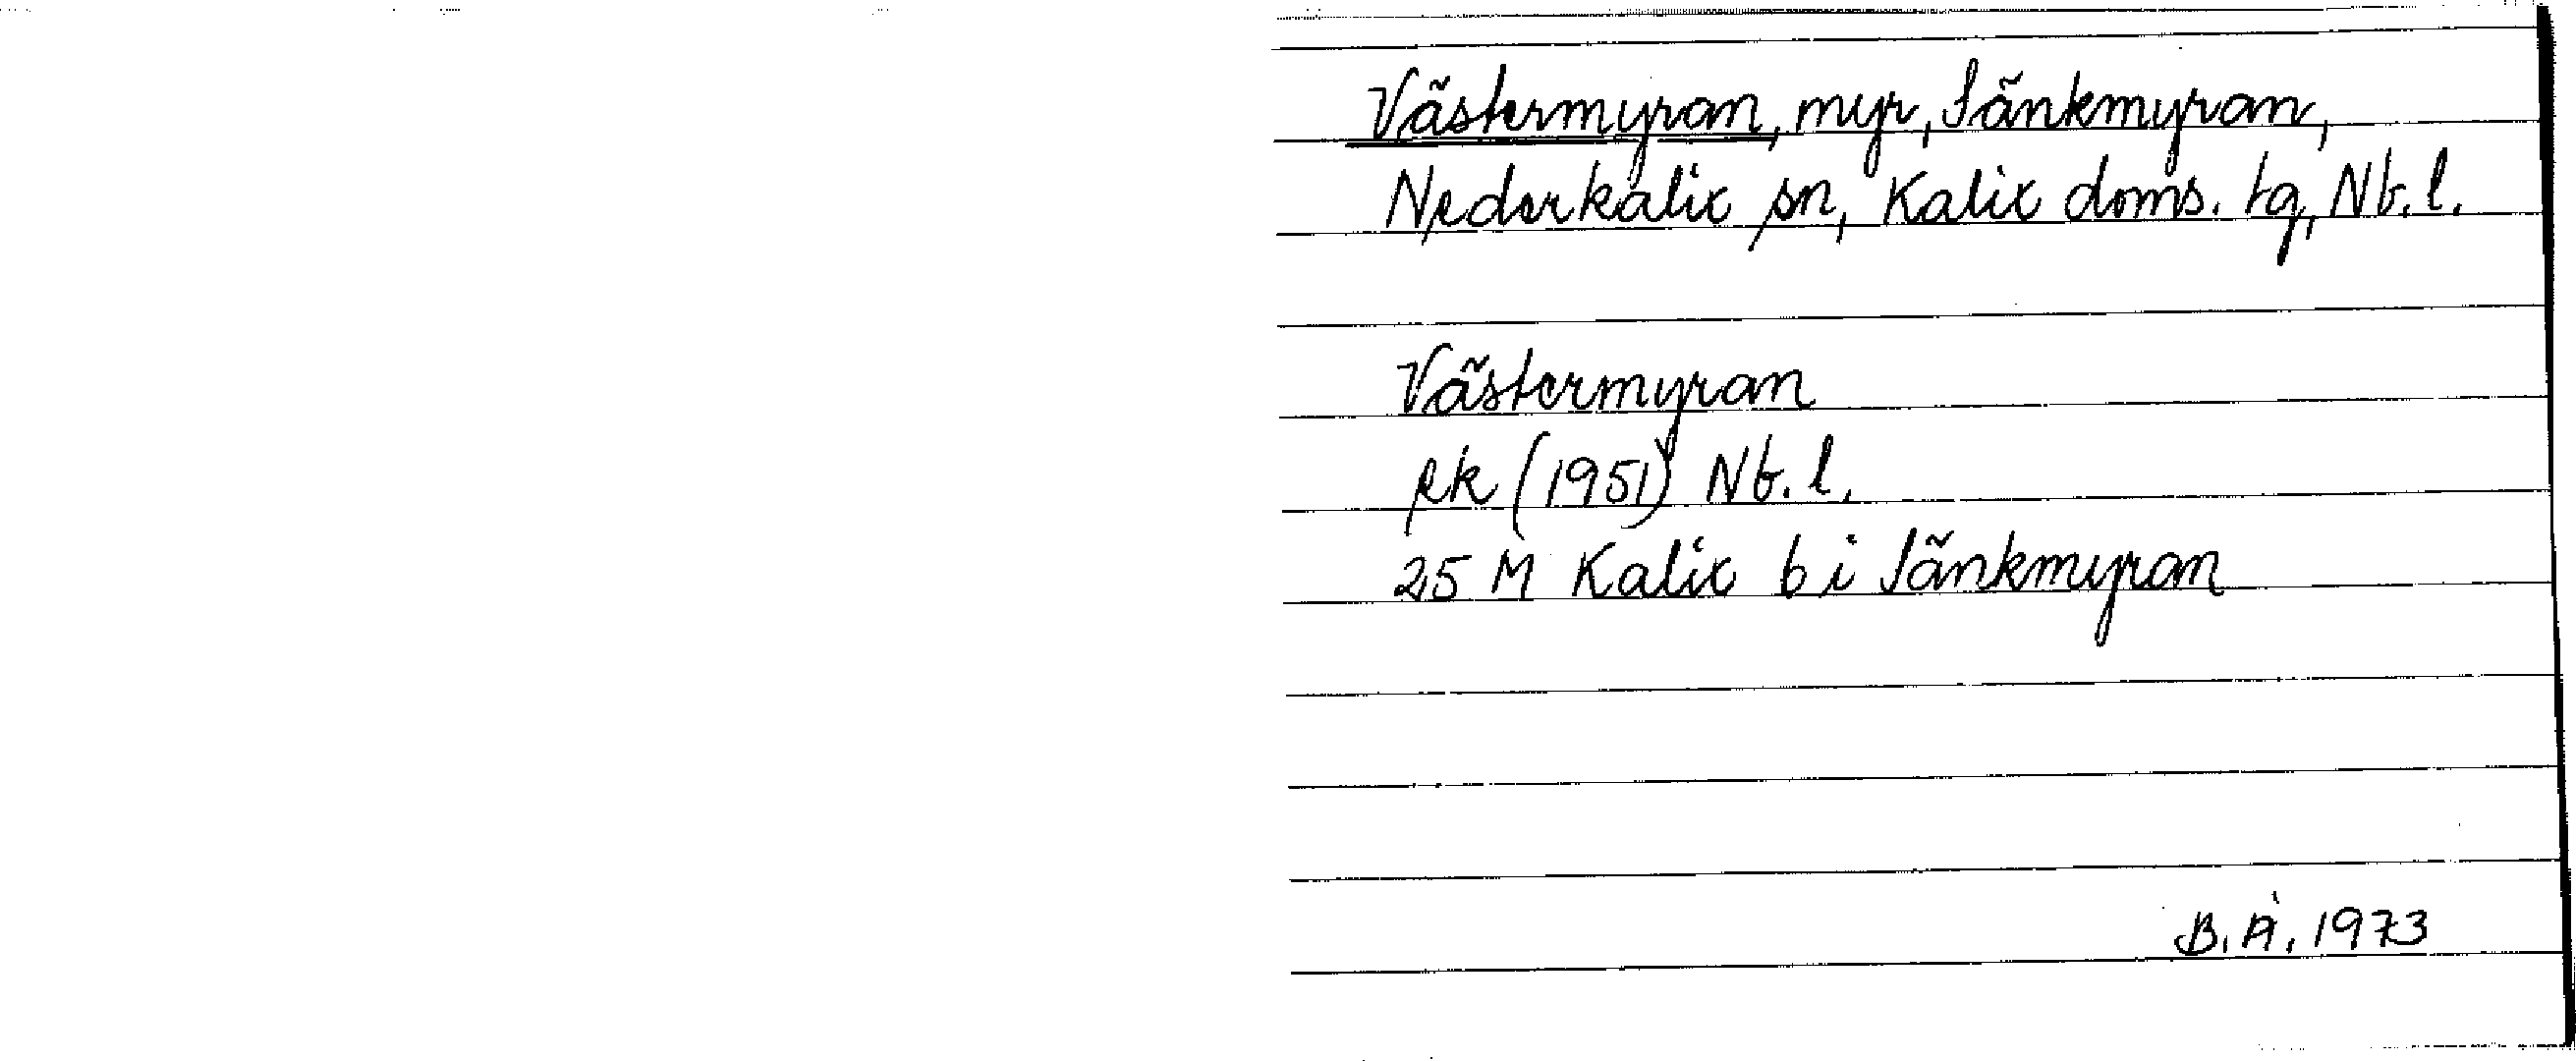 Västermyran, myr, Sänkmyran,
Nederkalix sn, Kalix doms. tg, Nb. l.
Västermyran
ek (1951) Nb. l.
25 M Kalix b i Sänkmyran
B. Å. 1973